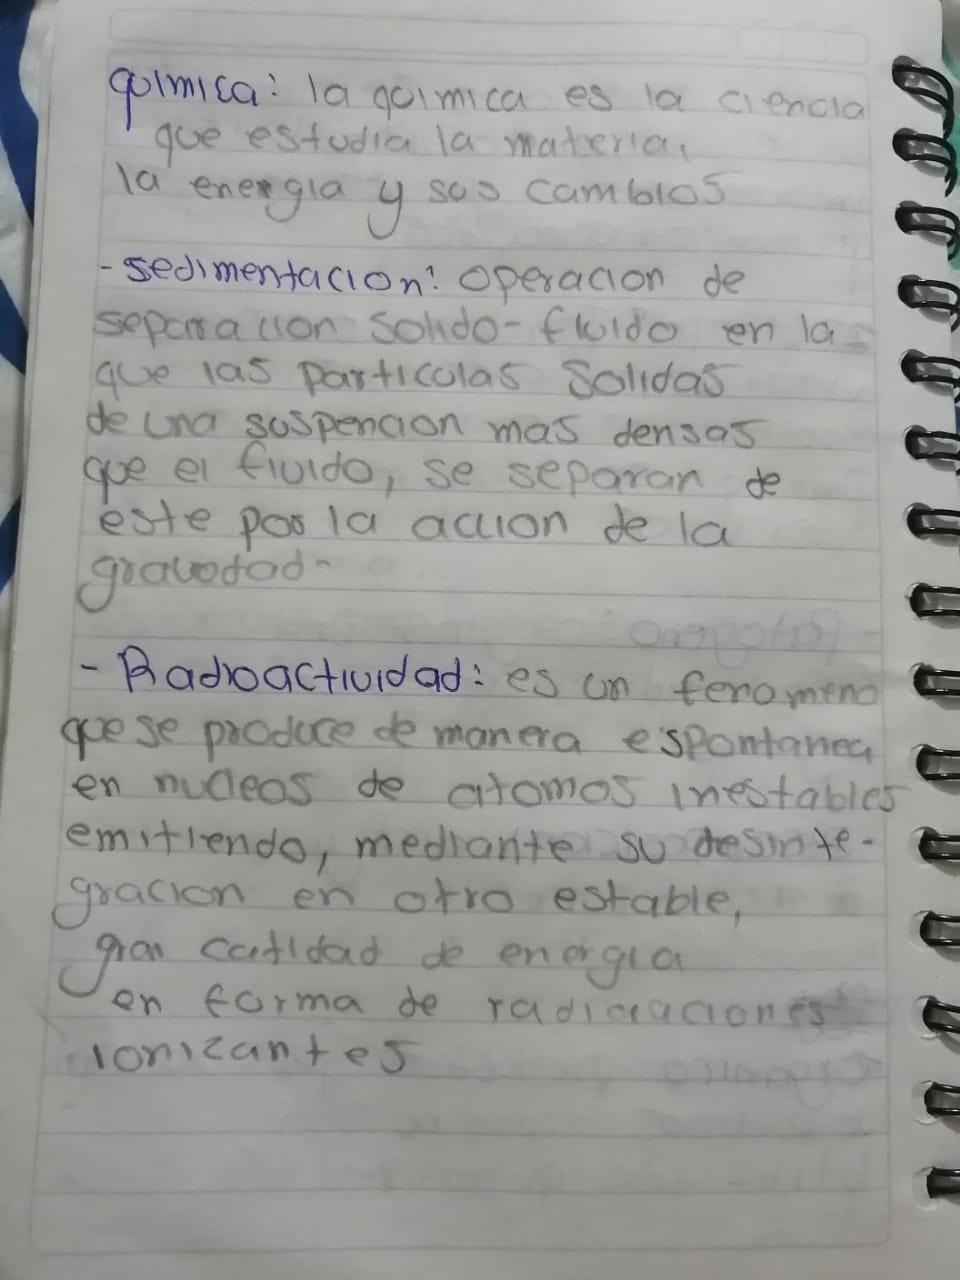 quimica: la quimica es la ciencia
que estudia la materia,
la energia y sus cambios
- sedimentacion: operacion de
separacion solido-fluido en la
que las particulas solidas
de una suspencion mas densas
que el fluido, se separan de
este por la accion de la
gravedad-
- Radioactividad: es un fenomeno
que se produce de manera espontanea
en nucleos de atomos inestables
emitiendo, mediante su desinte-
gracion en otro estable,
gran catidad de energia
en forma de radiaciones
ionizantes